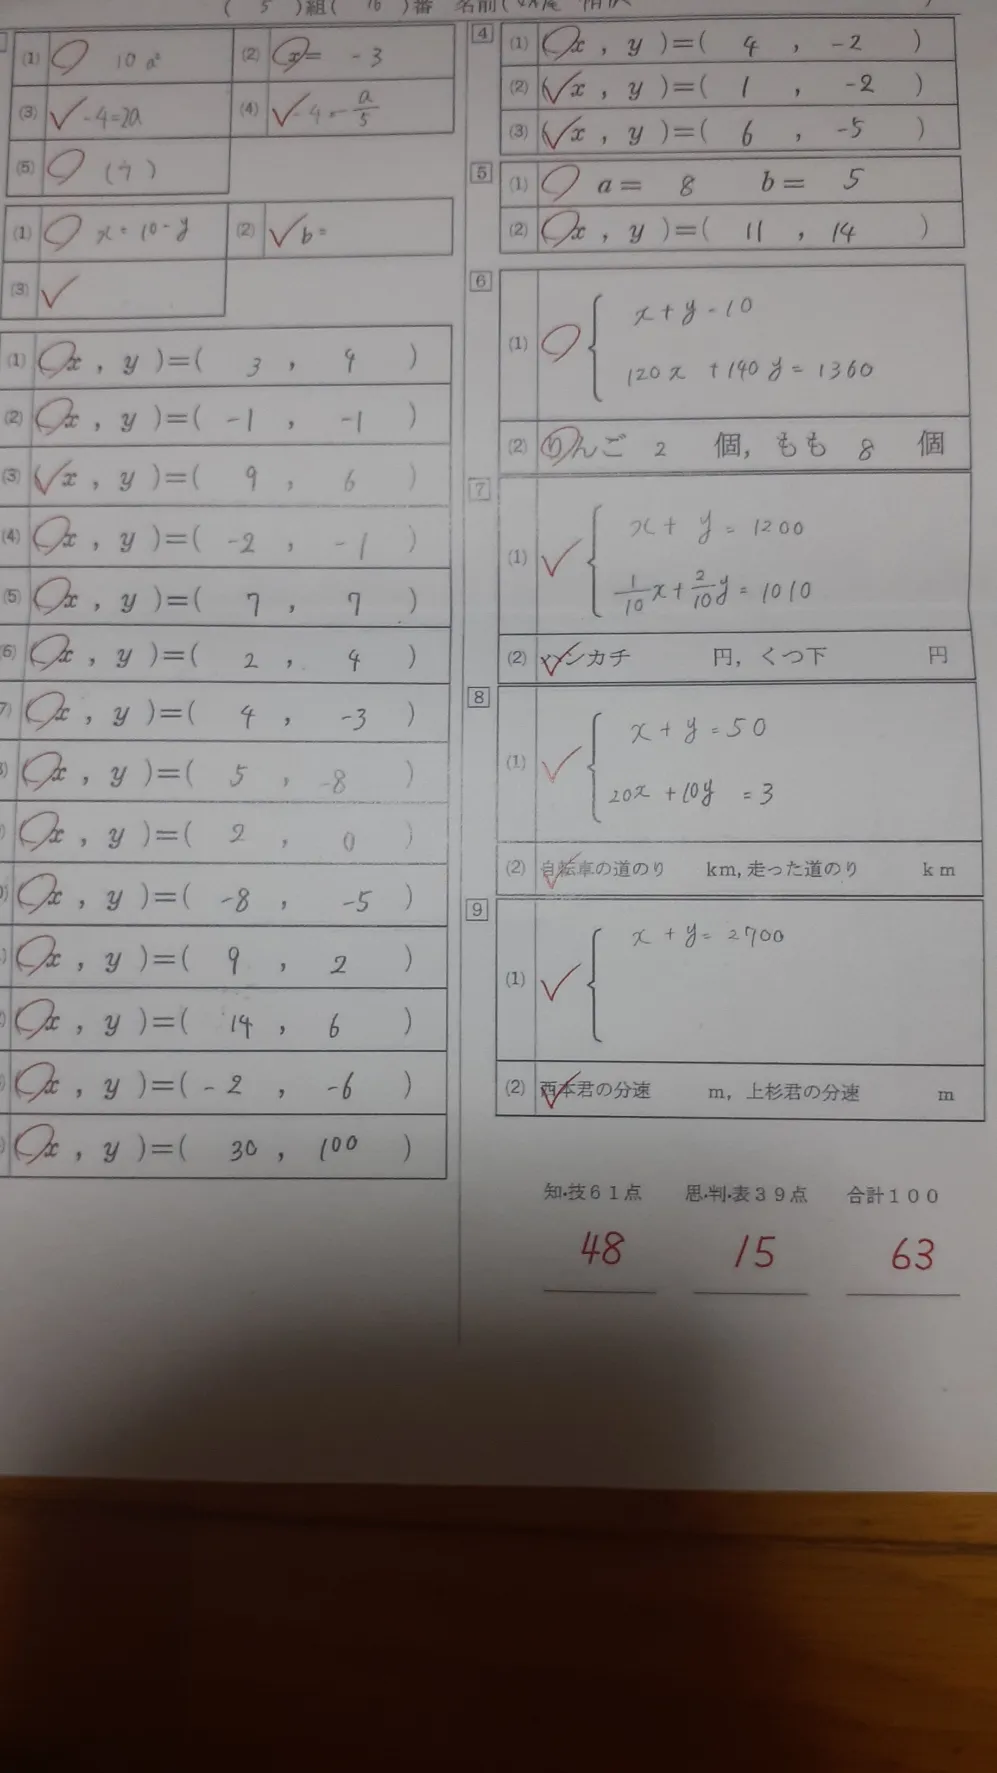 ( 5 )組( 16 )番 名前(
(1) 10a² (2) x = -3
(3) -4=2a (4) -4=-a/5
(5) (ウ)
(1) x=10-y (2) b=
(3)
(1) (x, y)=( 3, 4 )
(2) (x, y)=( -1, -1 )
(3) (x, y)=( 9, 6 )
(4) (x, y)=( -2, -1 )
(5) (x, y)=( 7, 7 )
(6) (x, y)=( 2, 4 )
7) (x, y)=( 4, -3 )
(x, y)=( 5, -8 )
(x, y)=( 2, 0 )
(x, y)=( -8, -5 )
(x, y)=( 9, 2 )
(x, y)=( 14, 6 )
(x, y)=( -2, -6 )
(x, y)=( 30, 100 )
4
(1) (x, y)=( 4, -2 )
(2) (x, y)=( 1, -2 )
(3) (x, y)=( 6, -5 )
5
(1) a= 8 b= 5
(2) (x, y)=( 11, 14 )
6
(1)
x+y-10
120x+140y=1360
(2) りんご 2 個, もも 8 個
7
(1)
x+y=1200
1/10x+2/10y=1010
(2) ハンカチ 円, くつ下 円
8
(1)
x+y=50
20x+10y =3
(2) 自転車の道のり km,走った道のり km
9
(1)
x+y=2700
(2) 西本君の分速 m, 上杉君の分速 m
知・技61点 思・判・表39点 合計100
48 15 63